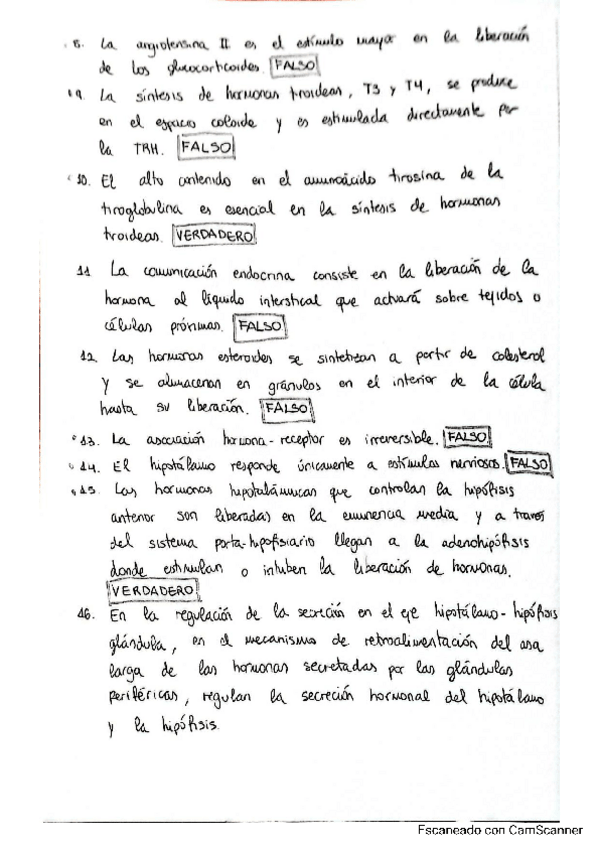 8. La angiotensina II es el estímulo mayor en la liberación
de los glucocorticoides. FALSO
9. La síntesis de hormonas tiroideas, T3 y T4, se produce
en el espacio coloide y es estimulada directamente por
la TRH. FALSO
10. El alto contenido en el aminoácido tirosina de la
tiroglobulina es esencial en la síntesis de hormonas
tiroideas. VERDADERO
11 La comunicación endocrina consiste en la liberación de la
hormona al líquido intersticial que actuará sobre tejidos o
células próximas. FALSO
12. Las hormonas esteroides se sintetizan a partir de colesterol
y se almacenan en gránulos en el interior de la célula
hasta su liberación. FALSO
13. La asociación hormona-receptor es irreversible. FALSO
14. El hipotálamo responde únicamente a estímulos nerviosos. FALSO
15. Las hormonas hipotalámicas que controlan la hipófisis
anterior son liberadas en la eminencia media y a través
del sistema porta-hipofisiario llegan a la adenohipófisis
donde estimulan o inhiben la liberación de hormonas.
VERDADERO
16. En la regulación de la secreción en el eje hipotálamo-hipófisis
glándula, en el mecanismo de retroalimentación del asa
larga de las hormonas secretadas por las glándulas
periféricas, regulan la secreción hormonal del hipotálamo
y la hipófisis.
Escaneado con CamScanner